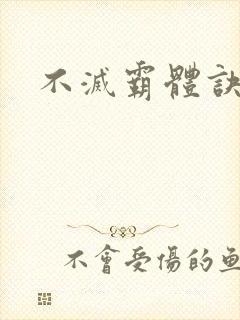 不滅霸體訣
不會受傷的魚